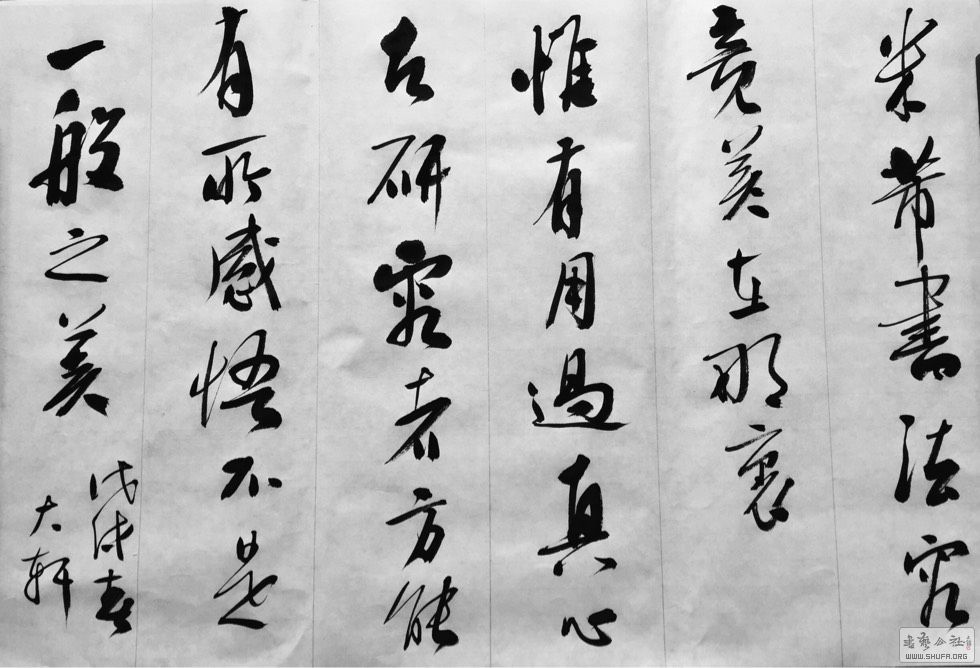 米芾書法究
竟美在那裏
惟有用過真心
去研究者方能
有所感悟不是
一般之美
戊戌春
大軒
書藝公社
WWW.SHUFA.ORG